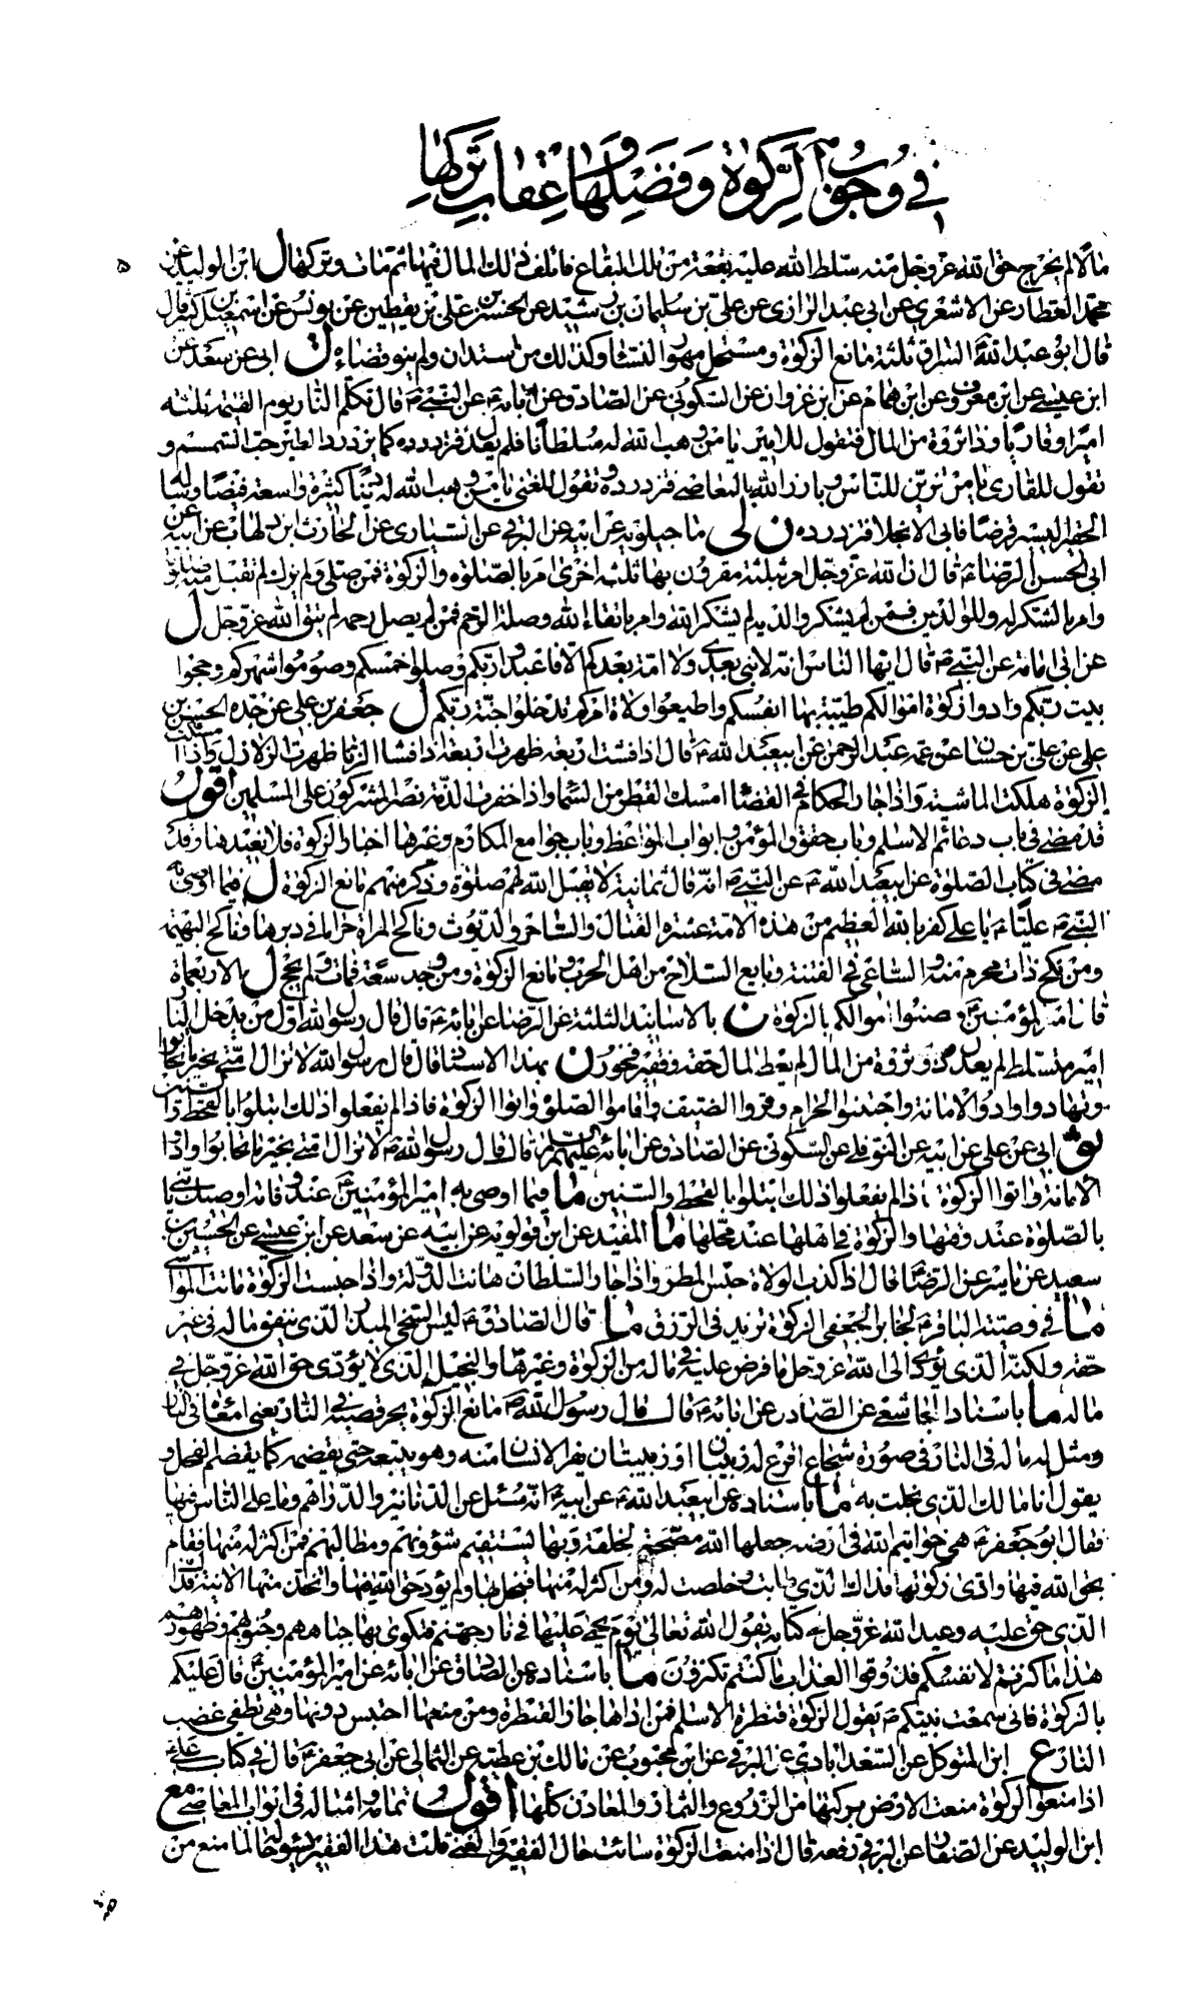 في وجوب الزكوة وفضلها وعقاب تركها
٥
مالا لم يخرج حق الله عز وجل منه سلط الله عليه بقعة من تلك البقاع فاتلف ذلك المال فيها ثم مات وتركها ل ابن الوليد عن
محمد العطار عن الاشعري عن ابي عبد الله الرازي عن علي بن سليمان بن رشيد عن الحسن بن علي بن يقطين عن يونس عن اسمعيل بن كثير قال
قال ابو عبد الله السراق ثلثة مانع الزكوة ومستحل مهور النساء وكذلك من استدان ولم ينو قضاءه ل ابي عن سعد عن
ابن عيسى عن ابن معروف عن ابن همام عن ابن غزوان عن السكوني عن الصادق عن ابائه ع عن النبي ص قال تكلم النار يوم القيمة ثلثة
اميرا وقاريا وذا ثروة من المال فتقول للامير يا من وهب الله له سلطانا فلم يعدل فتزدرده كما يزدرد الطير حب السمسم و
تقول للقاري يا من تزين للناس وبارز الله بالمعاصي فتزدرده وتقول للغني يا من وهب الله له دنيا كثيرة واسعة فيضا وساله
الحقير اليسير قرضا فابى الا بخلا فتزدرده ن لى ماجيلويه عن ابيه عن البرقي عن السياري عن الحارث بن دلهاث عن ابيه عن
ابي الحسن الرضا ع قال ان الله عز وجل امر بثلثة مقرون بها ثلثة اخرى امر بالصلوة والزكوة فمن صلى ولم يزك لم تقبل منه صلوته
وامر بالشكر له وللوالدين فمن لم يشكر والديه لم يشكر الله وامر باتقاء الله وصلة الرحم فمن لم يصل رحمه لم يتق الله عز وجل ل
عن ابي امامة عن النبي ص قال ايها الناس انه لا نبي بعدي ولا امة بعدكم الا فاعبدوا ربكم وصلوا خمسكم وصوموا شهركم وحجوا
بيت ربكم وادوا زكوة اموالكم طيبة بها انفسكم واطيعوا ولاة امركم تدخلوا جنة ربكم ل جعفر بن علي عن جده الحسن بن
علي عن علي بن حسان عن عمه عبد الرحمن عن ابيعبد الله ع قال اذا فشت اربعة ظهرت اربعة اذا فشا الزنا ظهرت الزلازل واذا امسكت
الزكوة هلكت الماشية واذا جار الحكام في القضاء امسك القطر من السماء واذا خفرت الذمة نصر المشركون على المسلمين اقول
قد مضى في باب دعائم الاسلام وباب حقوق المؤمن وابواب المواعظ وباب جوامع المكارم وغيرها اخبار الزكوة فلا نعيدها وقد
مضى في كتاب الصلوة عن ابيعبد الله ع عن النبي ص انه قال ثمانية لا يقبل الله لهم صلوة وذكر منهم مانع الزكوة ل فيما اوصى به
النبي ص عليا ع يا علي كفر بالله العظيم من هذه الامة عشرة القتال والساحر والديوث وناكح المراة حراما في دبرها وناكح البهيمة
ومن نكح ذات محرم منه والساعي في الفتنة وبايع السلاح من اهل الحرب ومانع الزكوة ومن وجد سعة فمات ولم يحج ل بالاربعماة
قال امير المؤمنين ع وحصنوا اموالكم بالزكوة ن بالاسانيد الثلثة عن الرضا عن ابائه ع قال قال رسول الله اول من يدخل النار
امير متسلط لم يعدل وذو ثروة من المال لم يعط المال حقه وفقير فخور ن بهذا الاسناد قال قال رسول الله لا تزال امتي بخير ما تحابوا
وتهادوا وادوا الامانة واجتنبوا الحرام وقروا الضيف واقاموا الصلوة واتوا الزكوة فاذا لم يفعلوا ذلك ابتلوا بالقحط والسنين
ثو ابي عن علي عن ابيه عن النوفلي عن السكوني عن الصادق عن ابائه عليهم السلام قال قال رسول الله ص لا تزال امتي بخير ما تحابوا وادوا
الامانة واتوا الزكوة اذا لم يفعلوا ذلك ابتلوا بالقحط والسنين ما فيما اوصى به امير المؤمنين ع عند وفاته اوصيك يا بني
بالصلوة عند وقتها والزكوة في اهلها عند محلها ما المفيد عن ابن قولويه عن ابيه عن سعد عن ابن عيسى عن الحسين بن
سعيد عن ياسر عن الرضا ع قال اذا كذب الولاة حبس المطر واذا جار السلطان هانت الدولة واذا حبست الزكوة ماتت المواشي
ما في وصية الباقر ع لجابر الجعفي الزكوة تزيد في الرزق ما قال الصادق ع ليس السخي المبذر الذي ينفق ماله في غير
حقه ولكنه الذي يؤدي الى الله عز وجل ما فرض عليه في ماله من الزكوة وغيرها والبخيل الذي لا يؤدي حق الله عز وجل في
ماله ما باسناد المجاشعي عن الصادق عن ابائه ع قال قال رسول الله ص مانع الزكوة يجر قصبه في النار يعني امعائه في النار
ومثل له ماله في النار في صورة شجاع اقرع له زبيبان او زبيبتان يفر الانسان منه وهو يتبعه حتى يقضمه كما يقضم الفجل و
يقول انا مالك الذي بخلت به ما باسناده عن ابيعبد الله ع عن ابيه ع انه سئل عن الدنانير والدراهم وما على الناس فيها
فقال ابو جعفر ع هي خواتيم الله في ارضه جعلها الله مصحة لخلقه وبها يستقيم شؤونهم ومطالبهم فمن كثر له منها فقام
بحق الله فيها وادى زكوتها فذاك الذي طابت وخلصت له ومن اكثر له منها فبخل بها ولم يؤد حق الله فيها واتخذ منها الانية فذاك
الذي حق عليه وعيد الله عز وجل في كتابه يقول الله تعالى يوم يحمى عليها في نار جهنم فتكوى بها جباههم وجنوبهم وظهورهم
هذا ما كنزتم لانفسكم فذوقوا العذاب ما كنتم تكنزون ما باسناده عن الصادق عن ابائه عن امير المؤمنين ع قال عليكم
بالزكوة فاني سمعت نبيكم ص يقول الزكوة قنطرة الاسلام فمن اداها جاز القنطرة ومن منعها احتبس دونها وهي تطفئ غضب
النار ع ابن المتوكل عن السعدابادي عن البرقي عن ابن محبوب عن مالك بن عطية عن الثمالي عن ابي جعفر ع قال في كتاب علي ع
اذا منعوا الزكوة منعت الارض بركتها من الزروع والثمار والمعادن كلها اقول تمامه وامثاله في ابواب المعاصي مع
ابن الوليد عن الصفار عن البرقي رفعه قال اذا منعت الزكوة سائت حال الفقير والغني قلت هذا الفقير يسوء حاله لما منع من